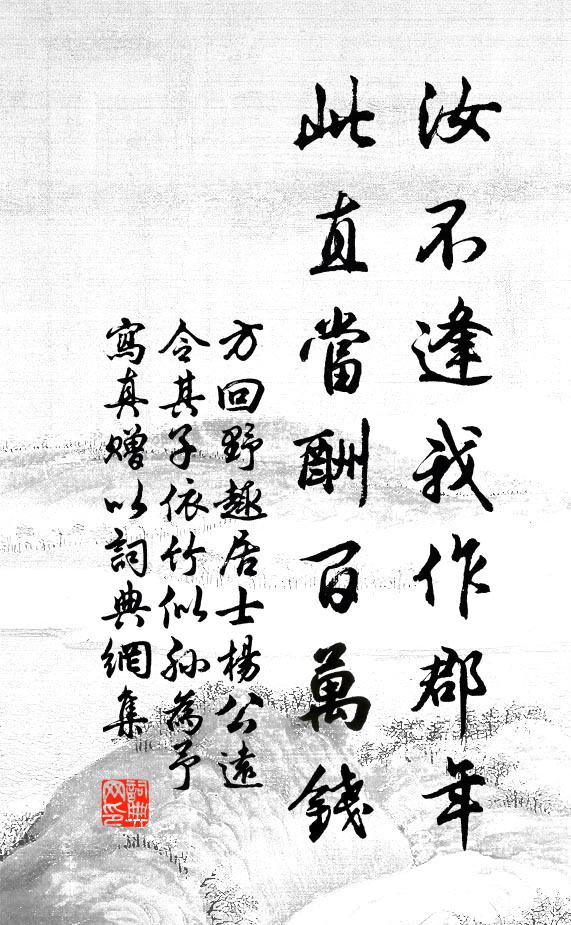 汝不逢我作郡年
此直當酬百萬錢
方回野趣居士楊公遠
令其子依竹似孫為予
寫真贈以詞典網集
詞典網印